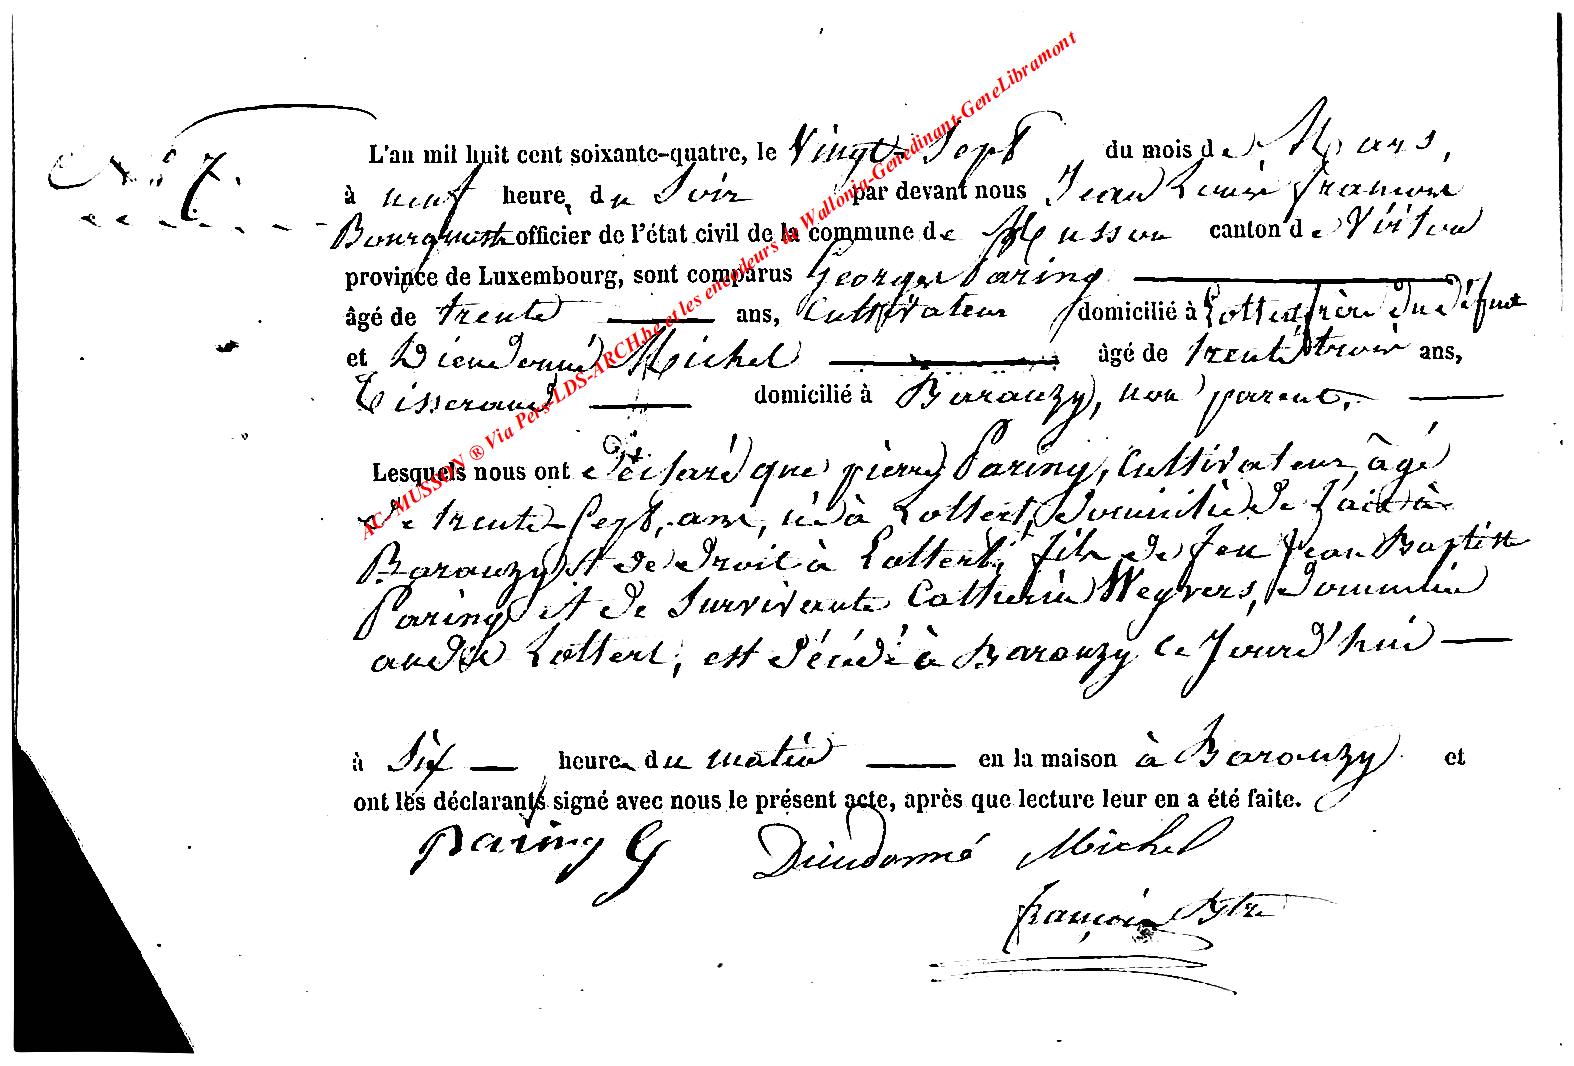 N.º 7.
L'an mil huit cent soixante-quatre, le Vingt-Sept du mois de Mars,
à neuf heures du Soir par devant nous Jean Louis François
Bourgmestre officier de l'état civil de la commune de Musson canton de Virton
province de Luxembourg, sont comparus Georges Paring
âgé de trente ans, Cultivateur domicilié à Lottert frère du défunt
et Dieudonné Michel âgé de trente trois ans,
Tisserand domicilié à Baranzy, non parent.
Lesquels nous ont déclaré que pierre Paring, Cultivateur, âgé
de trente-Sept, ans, né à Lottert, domicilié de fait à
Baranzy et de droit à Lottert, fils de feu Jean Baptiste
Paring et de Survivante Catherine Weyvers, domiciliée
audit Lottert, est décédé à Baranzy ce Jourd'hui
à Six heures du matin en la maison à Baranzy et
ont les déclarants signé avec nous le présent acte, après que lecture leur en a été faite.
Paring G Dieudonné Michel
françois Bgtre
AC-MUSSON ® Via Pers-LDS-ARCH.be et les encodeurs de Wallonia-Genedinant-GeneLibramont